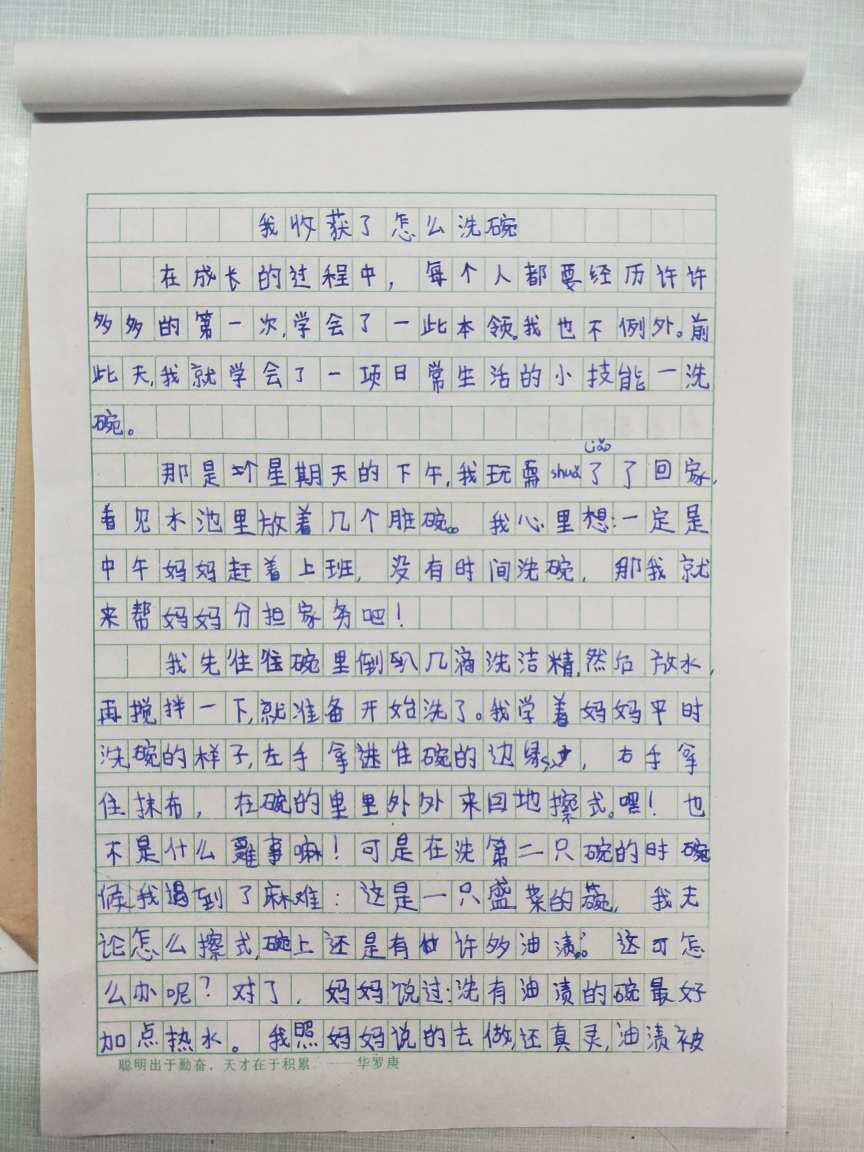 我收获了怎么洗碗
在成长的过程中，每个人都要经历许许
多多的第一次,学会了一些本领。我也不例外。前
些天,我就学会了一项日常生活的小技能一洗
碗。
liǎo
那是个星期天的下午,我玩耍shuǎ了了回家,
看见水池里放着几个脏碗。我心里想:一定是
中午妈妈赶着上班,没有时间洗碗,那我就
来帮妈妈分担家务吧!
我先往往碗里倒几滴洗洁精,然后放水,
再搅拌一下,就准备开始洗了。我学着妈妈平时
洗碗的样子,左手拿住碗的边缘,右手拿
住抹布,在碗的里里外外来回地擦式。嘿!也
不是什么难事嘛!可是在洗第二只碗的时
候,我遇到了麻难:这是一只盛菜的碗,我无
论怎么擦式,碗上还是有许多油渍。这可怎
么办呢?对了,妈妈说过:洗有油渍的碗最好
加点热水。我照妈妈说的去做,还真灵,油渍被
聪明出于勤奋，天才在于积累。——华罗庚